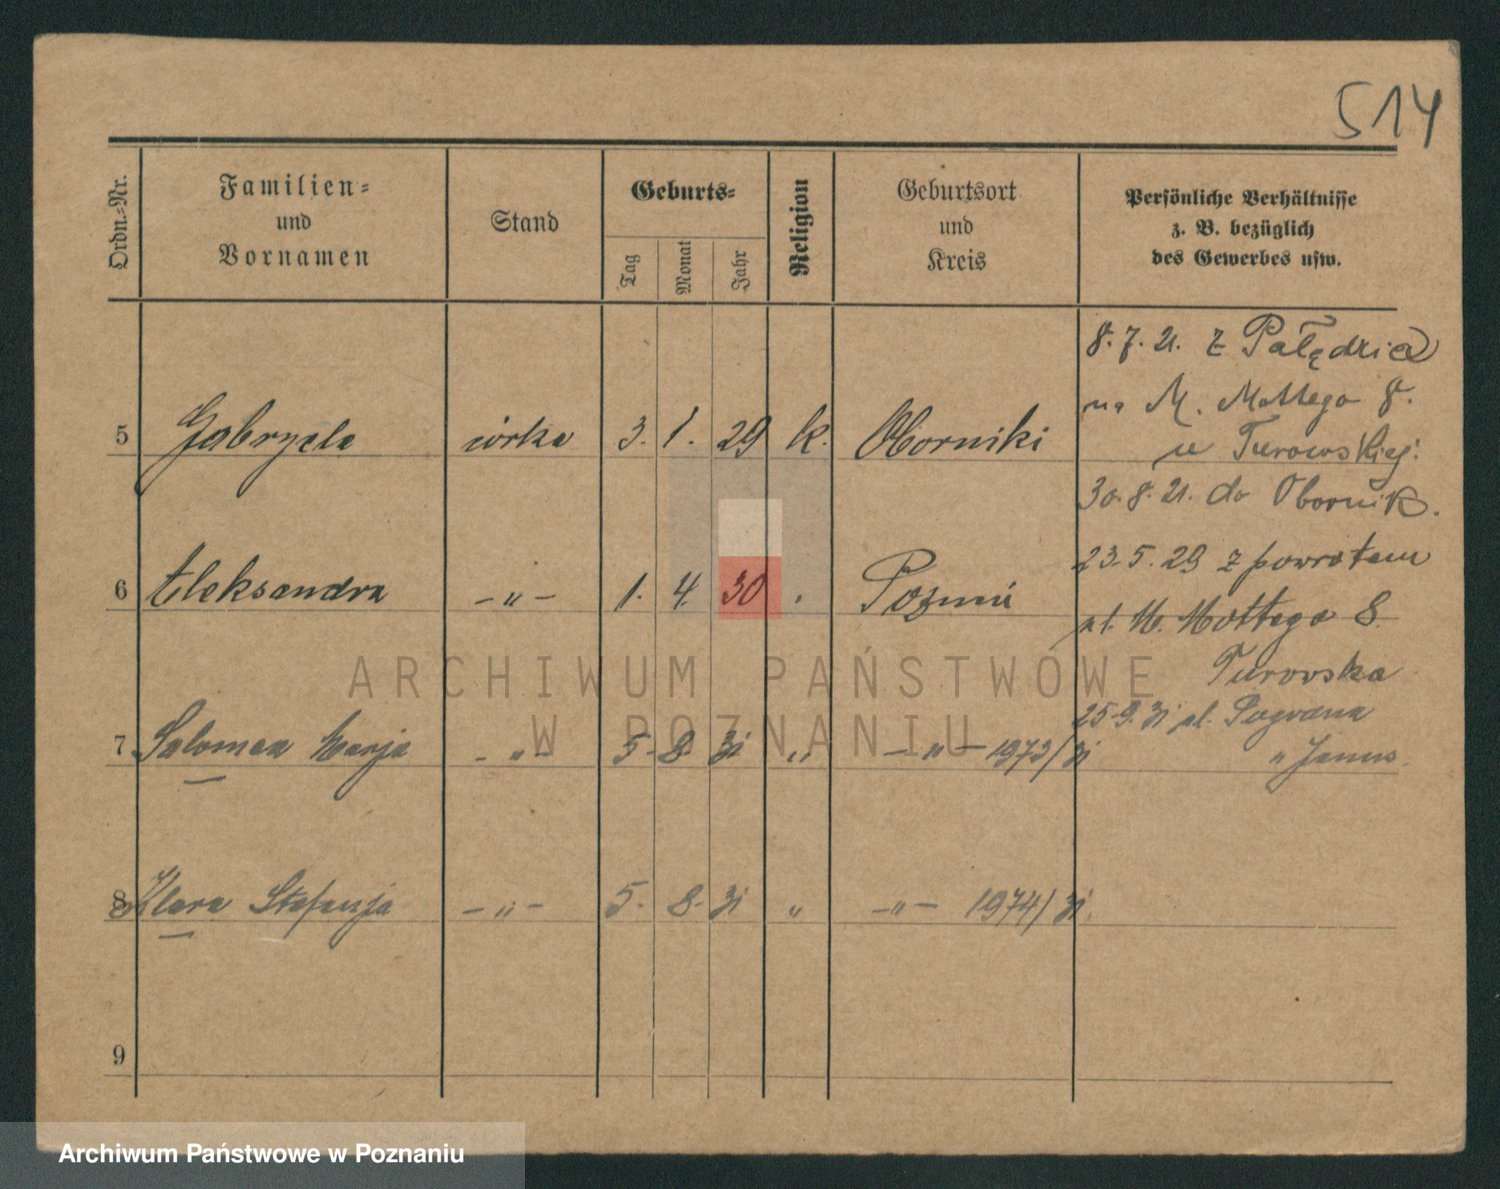 514
Ordn.-Nr.
Familien-
und
Vornamen
Stand
Geburts-
Tag
Monat
Jahr
Religion
Geburtsort
und
Kreis
Persönliche Verhältnisse
z. B. bezüglich
des Gewerbes usw.
8. 7. 21. z Palędzia
na M. Mottego 8.
u Turowskiej.
30. 8. 21. do Obornik.
5 Gabryela córka 3. 1. 29 k. Oborniki
23. 5. 29 z powrotem
6 Aleksandra - „ - 1. 4. 30 Poznań
ul. M. Mottego 8.
Turowska
25. 9. 31 ul.
7 Salomea Marja - „ - 5. 8. 31 „ - „ - 1973/31
8 Klara Stefanja - „ - 5. 8. 31 „ - „ - 1974/31.
9
ARCHIWUM PAŃSTWOWE
W POZNANIU
Archiwum Państwowe w Poznaniu